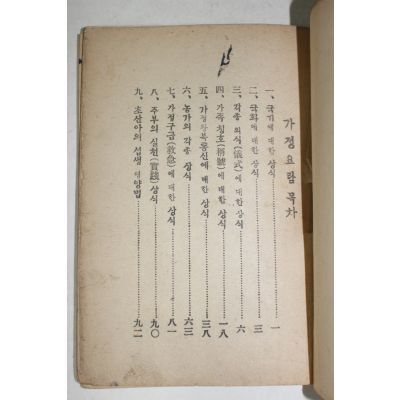 가정요람목차
一、국기에 대한 상식……一
二、국화에 대한 상식……三
三、각종 의식(儀式)에 대한 상식……六
四、가족 칭호(稱號)에 대한 상식……一八
五、가정 통신에 대한 상식……三八
六、농가의 각종 상식……六三
七、가정구급(救急)에 대한 상식……八一
八、주부의 실천(實踐)상식……九〇
九、초산아의 섭생 영양법……九二